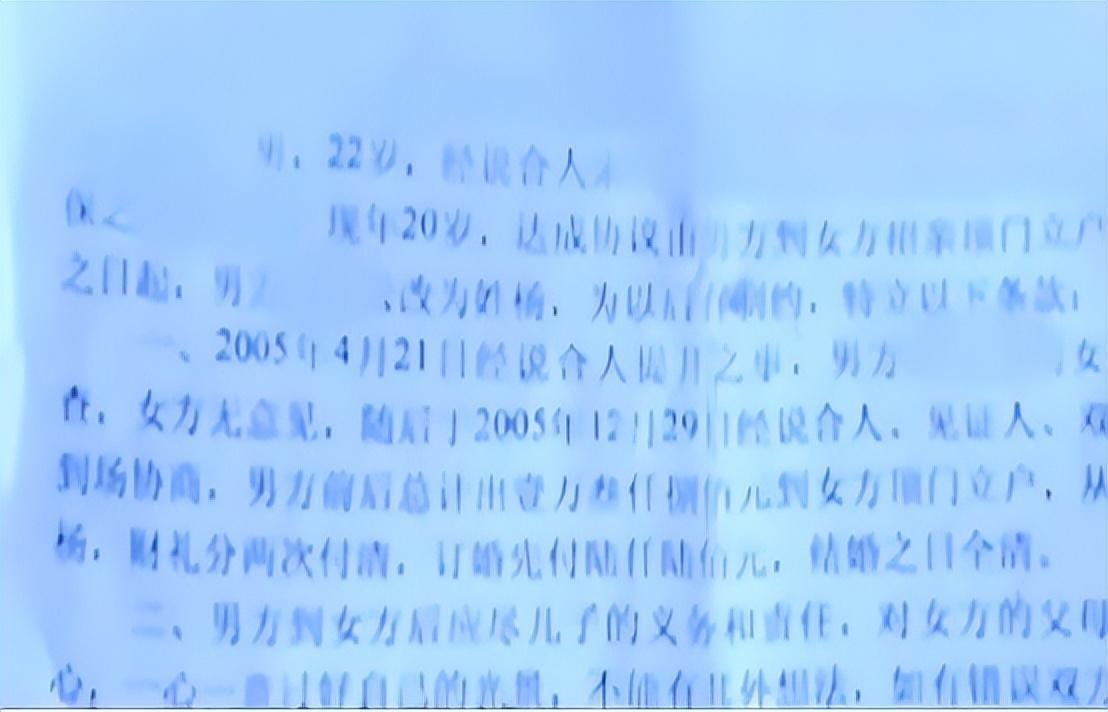 男，22岁，经说合人
现年20岁，达成协议由男方到女方相亲顶门立户
之日起，男 改为姓杨，为以后 特立以下条款：
一、2005年4月21日经说合人提并之事，男方 女
查，女方无意见，随后于2005年12月29日经说合人、见证人、双
到场协商，男方前后总计出壹万叁仟捌佰元到女方顶门立户，从
杨，财礼分两次付清，订婚先付陆仟陆佰元，结婚之日全清。
二、男方到女方后应尽儿子的义务和责任，对女方的父母
心，一心一意过好自己的光景，不能有其外想法，如有错误双方